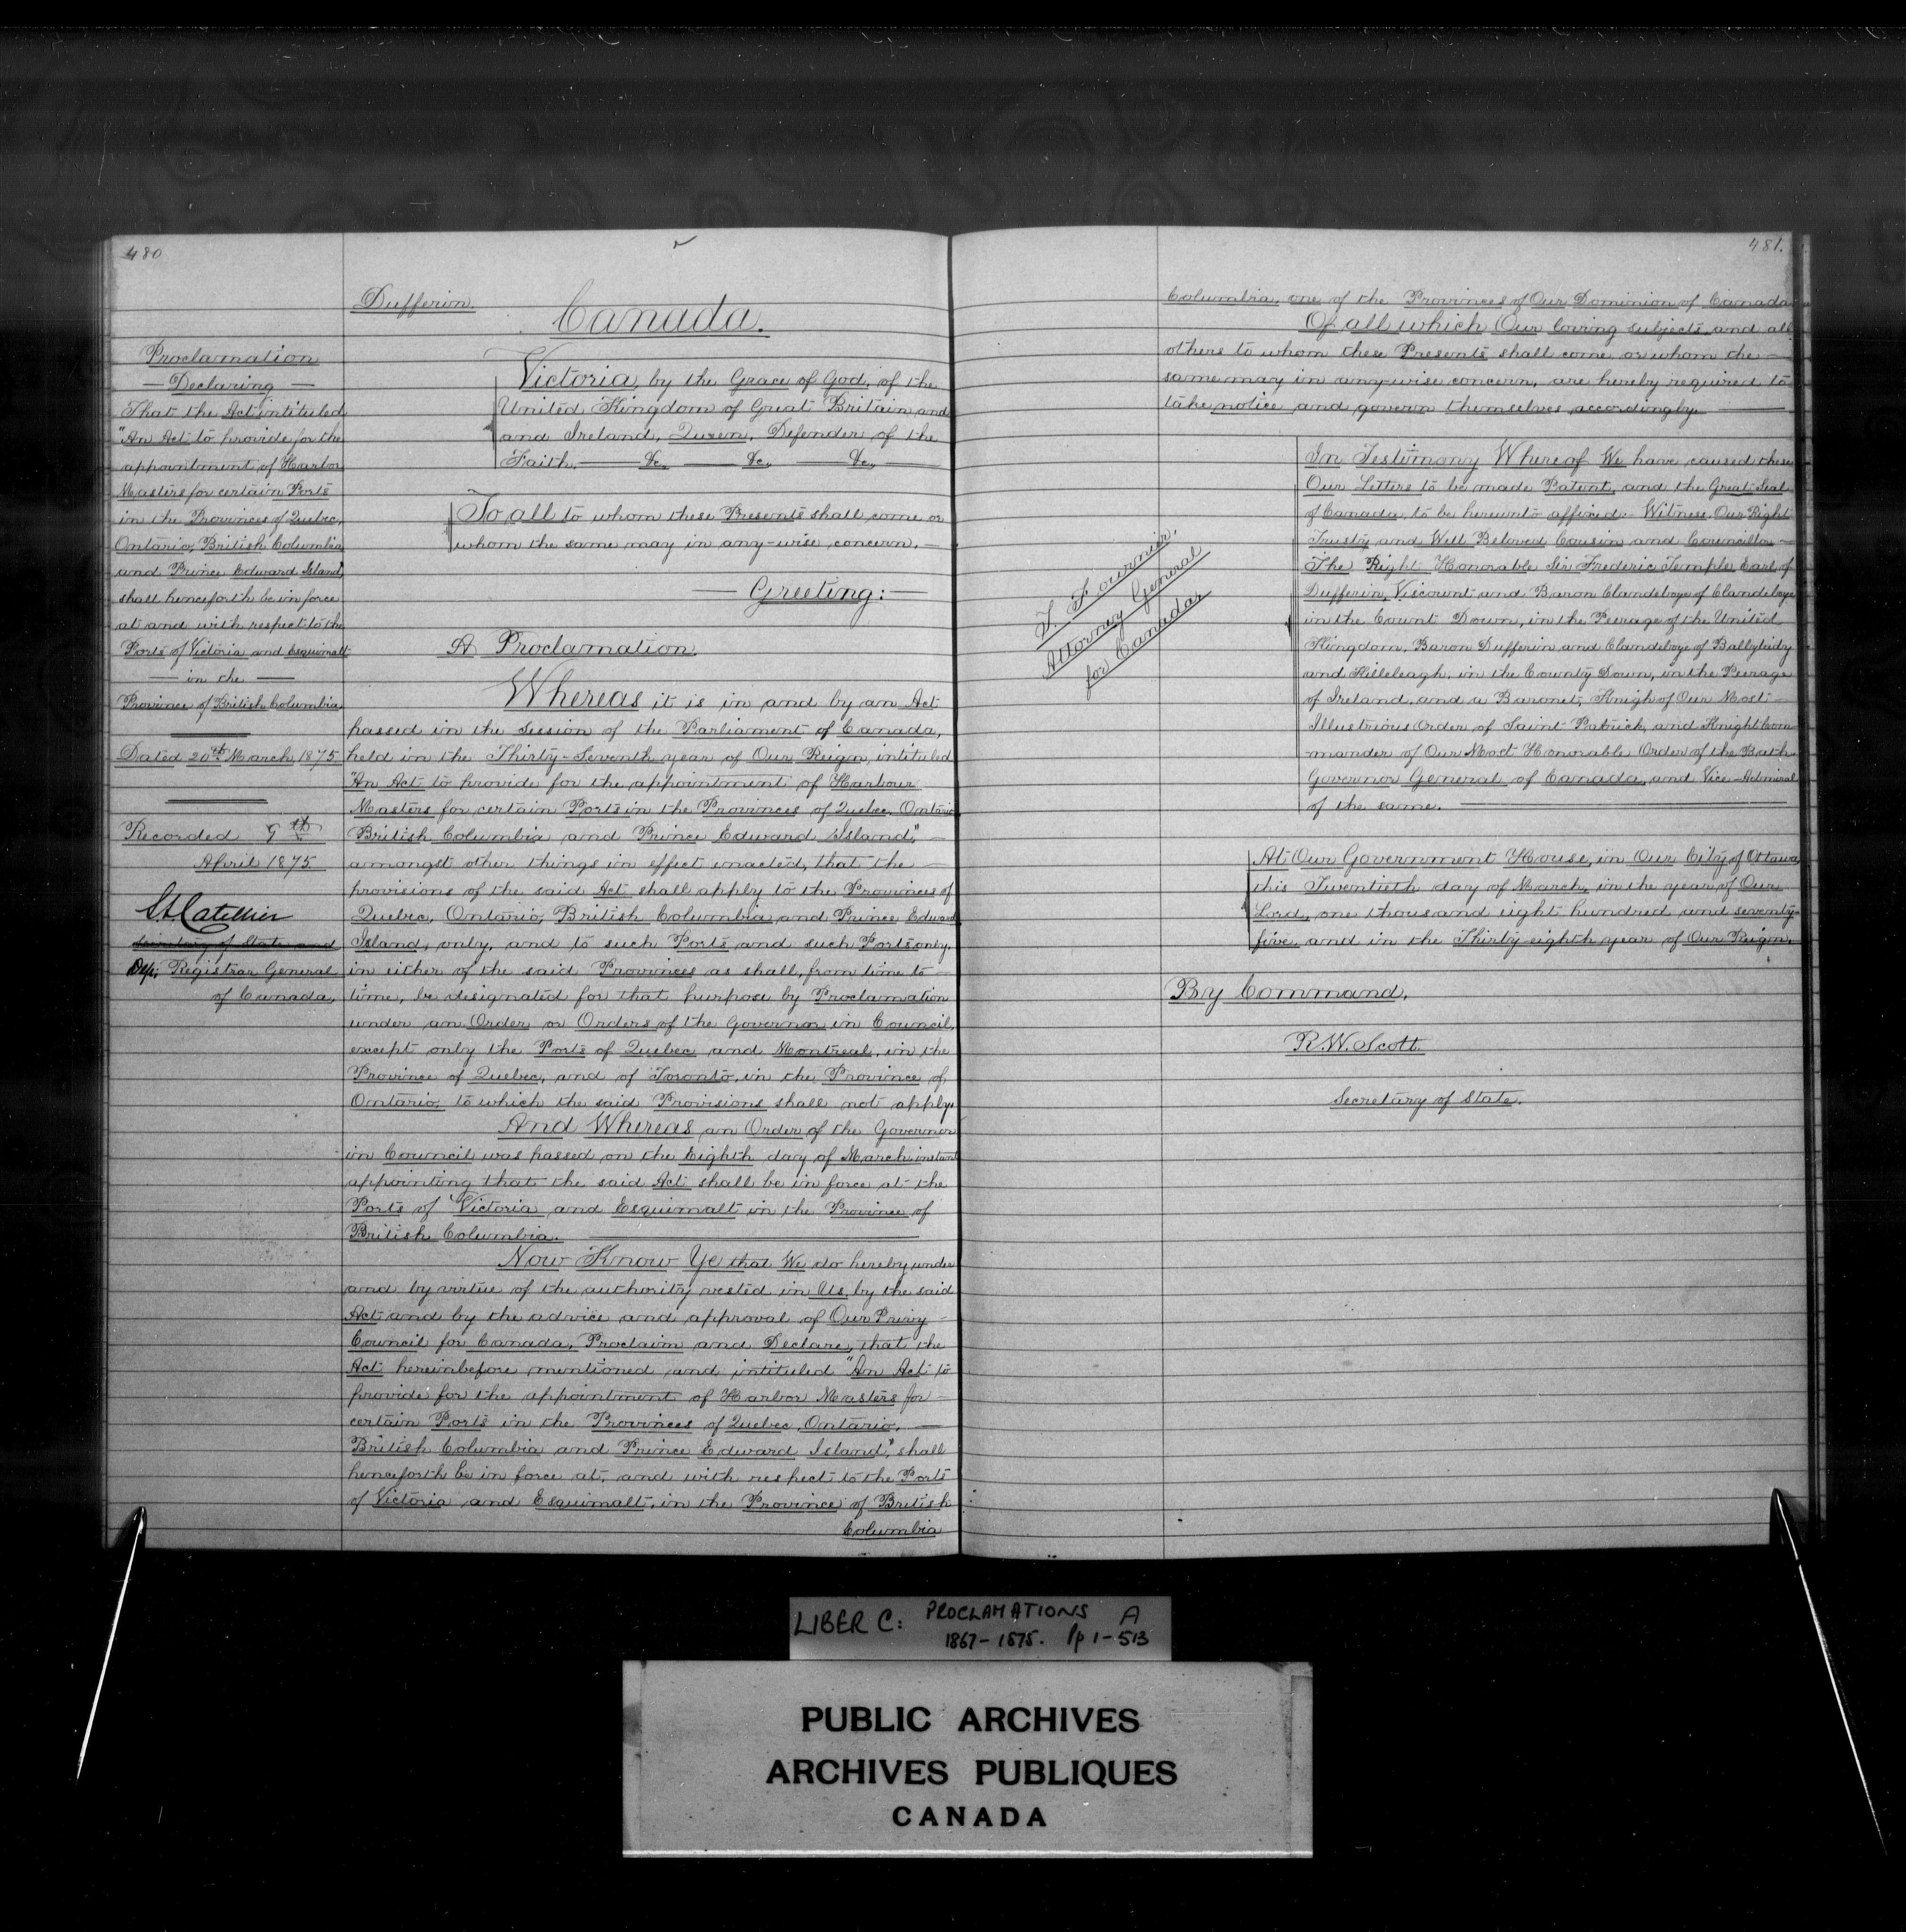 480
Proclamation
— Declaring —
That the Act intituled
"An Act to provide for the
appointment of Harbor
Masters for certain Ports
in the Provinces of Quebec,
Ontario, British Columbia
and Prince Edward Island,"
shall henceforth be in force
at and with respect to the
Ports of Victoria and Esquimalt
— in the —
Province of British Columbia
Dated 20th March, 1875
Recorded 9th
April 1875
Secretary of State and
Dep: Registrar General
of Canada,
Dufferin.
Canada.
Victoria, by the Grace of God, of the
United Kingdom of Great Britain and
and Ireland, Queen, Defender of the
Faith, — &c., — &c., — &c., —
To all to whom these Presents shall come or
whom the same may in any-wise concern, —
— Greeting: —
A Proclamation.
Whereas it is in and by an Act
passed in the Session of the Parliament of Canada,
held in the Thirty-Seventh year of Our Reign, intituled
"An Act to provide for the appointment of Harbour
Masters for certain Ports in the Provinces of Quebec, Ontario
British Columbia and Prince Edward Island," —
amongst other things in effect enacted, that the —
provisions of the said Act shall apply to the Provinces of
Quebec, Ontario, British Columbia and Prince Edward
Island, only, and to such Ports and such Ports only,
in either of the said Provinces as shall, from time to —
time, be designated for that purpose by Proclamation
under an Order or Orders of the Governor in Council,
except only the Ports of Quebec and Montreal, in the
Province of Quebec, and of Toronto, in the Province of
Ontario, to which the said Provisions shall not apply.
And Whereas an Order of the Governor
in Council was passed on the Eighth day of March instant
appointing that the said Act shall be in force at the
Ports of Victoria and Esquimalt in the Province of
British Columbia. —
Now Know Ye that We do hereby under
and by virtue of the authority vested in Us, by the said
Act and by the advice and approval of Our Privy —
Council for Canada, Proclaim and Declare, that the
Act hereinbefore mentioned and intituled "An Act to
provide for the appointment of Harbor Masters for —
certain Ports in the Provinces of Quebec, Ontario, —
British Columbia and Prince Edward Island," shall
henceforth be in force at, and with respect to the Ports
of Victoria and Esquimalt, in the Province of British
Columbia
481.
Columbia, one of the Provinces of Our Dominion of Canada
Of all which Our loving subjects and all
others to whom these Presents shall come, or whom the —
same may in any wise concern, are hereby required to
take notice and govern themselves accordingly. —
T. Fournier,
Attorney General
for Canada,
In Testimony Whereof We have caused these
Our Letters to be made Patent, and the Great Seal
of Canada, to be hereunto affixed:- Witness, Our Right
Trusty and Well Beloved Cousin and Councillor —
The Right Honorable Sir Frederic Temple, Earl of
Dufferin, Viscount and Baron Clandeboye of Clandeboye
in the Count Down, in the Peerage of the United
Kingdom, Baron Dufferin and Clandeboye of Ballyleidy
and Killeleagh, in the County Down, in the Peerage
of Ireland, and a Baronet, Knigh of Our Most —
Illustrious Order of Saint Patrick, and Knight Com-
mander of Our Most Honorable Order of the Bath
Governor General of Canada, and Vice-Admiral
of the same. —
At Our Government House, in Our City of Ottawa,
this Twentieth day of March, in the year of Our
Lord, one thousand eight hundred and seventy-
five, and in the Thirty eighth year of Our Reign.
By Command,
R.W. Scott.
Secretary of State.
LIBER C: PROCLAMATIONS A
1867-1875. Pp 1-513
PUBLIC ARCHIVES
ARCHIVES PUBLIQUES
CANADA